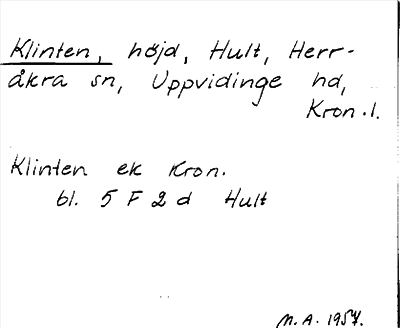 Klinten, höjd, Hult, Herr-
åkra sn, Uppvidinge hd,
Kron.l.
Klinten ek Kron.
bl. 5 F 2 d Hult
M.A. 1957.